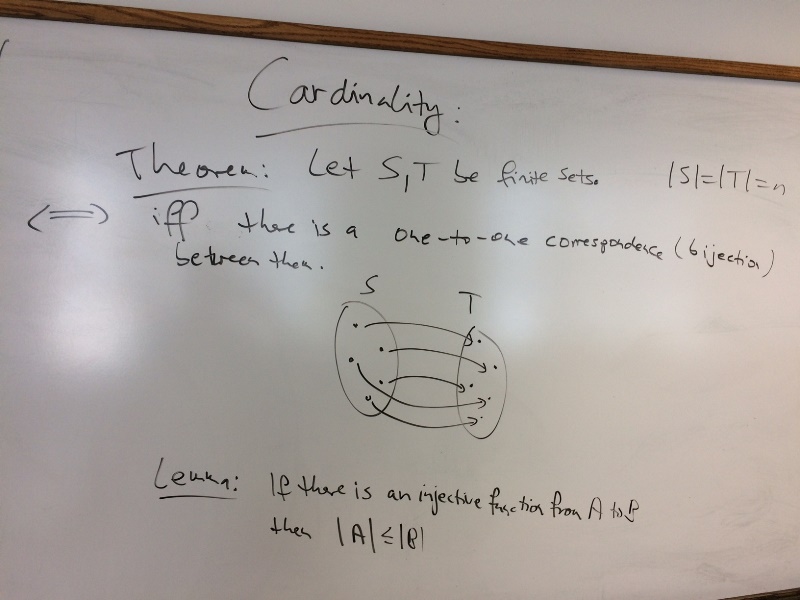 Cardinality:
Theorem: Let S,T be finite sets. |S|=|T|=n
<=> iff there is a one-to-one correspondence (bijection)
between them.
S T
Lemma: If there is an injective function from A to B
then |A|≤|B|